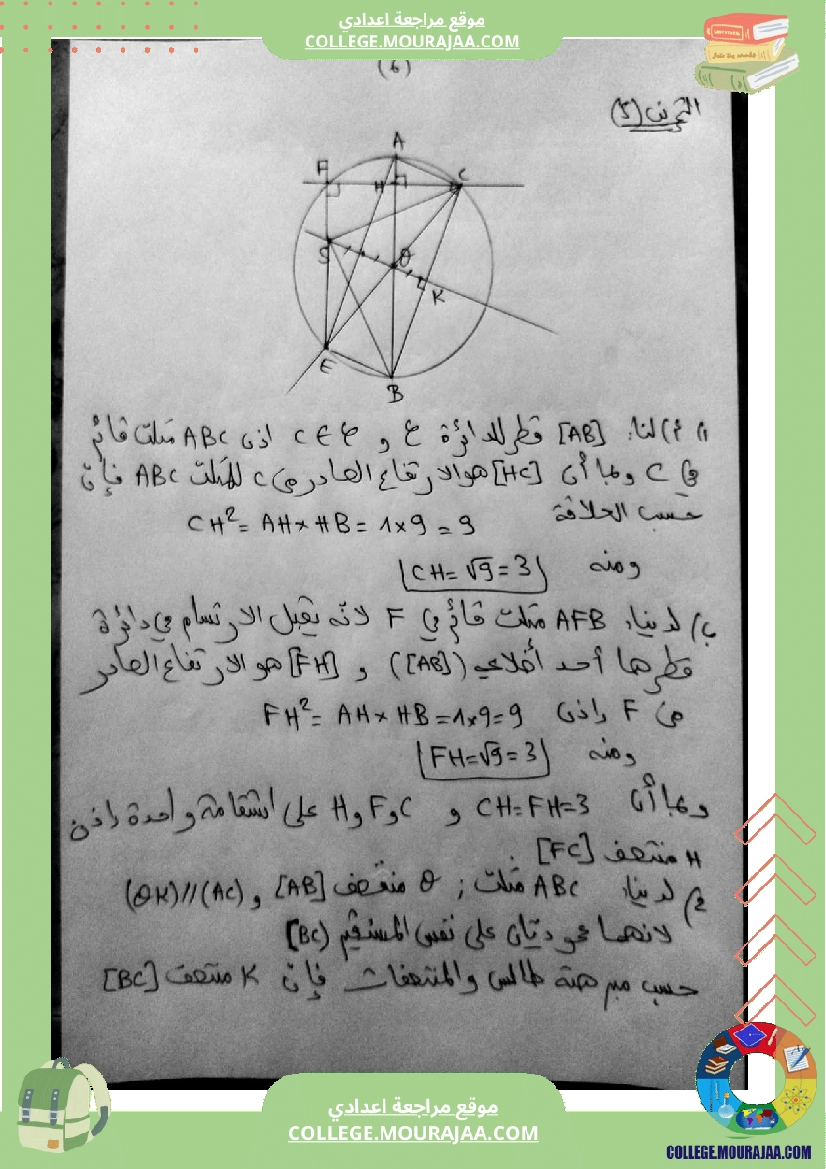 موقع مراجعة اعدادي
COLLEGE.MOURAJAA.COM
(6)
التمرين (5)
A
F
H
C
S
O
K
E
B
1) أ) لنا: [AB] قطر للدائرة ℰ و C ∈ ℰ اذن ABC مثلث قائم
في C وبما أن [HC] هو الارتفاع الصادر من C للمثلث ABC فإن
حسب العلاقة CH² = AH × HB = 1 × 9 = 9
ومنه CH = √9 = 3
ب) لدينا: AFB مثلث قائم في F لانه يقبل الارتسام في دائرة
قطرها أحد أضلاعه ([AB]) و [FH] هو الارتفاع الصادر
من F إذن FH² = AH × HB = 1 × 9 = 9
ومنه FH = √9 = 3
وبما أن CH = FH = 3 و C و F و H على استقامة واحدة إذن
H منتصف [FC]
2) لدينا: ABC مثلث ; O منتصف [AB] و (OK) // (AC)
لانهما عموديان على نفس المستقيم (BC)
حسب مبرهنة طالس والمنتصفات فإن K منتصف [BC]
موقع مراجعة اعدادي
COLLEGE.MOURAJAA.COM
COLLEGE.MOURAJAA.COM